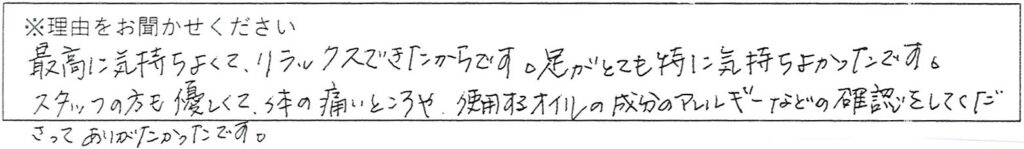 ※理由をお聞かせください
最高に気持ちよくて、リラックスできたからです。足がとても特に気持ちよかったです。
スタッフの方も優しくて、体の痛いところや、使用するオイルの成分のアレルギーなどの確認をしてくだ
さってありがたかったです。